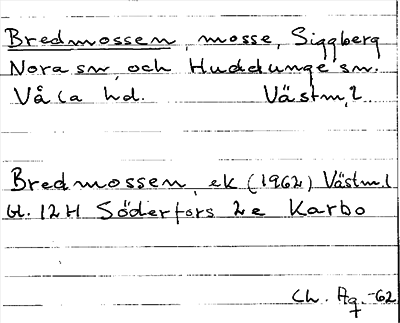 Bredmossen, mosse, Siggberg
Nora sn och Huddunge sn.
Våla hd. Västm.l.
Bredmossen, ek (1962) Västm.l
bl. 12H Söderfors 2e Karbo
Ch. Ag. -62